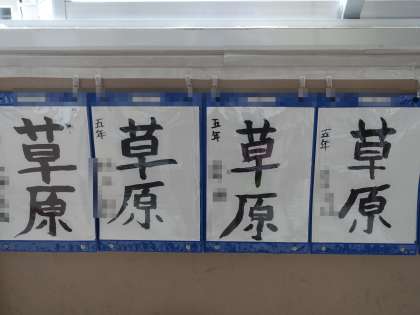 草原
五年
草原
五年
草原
五年
草原